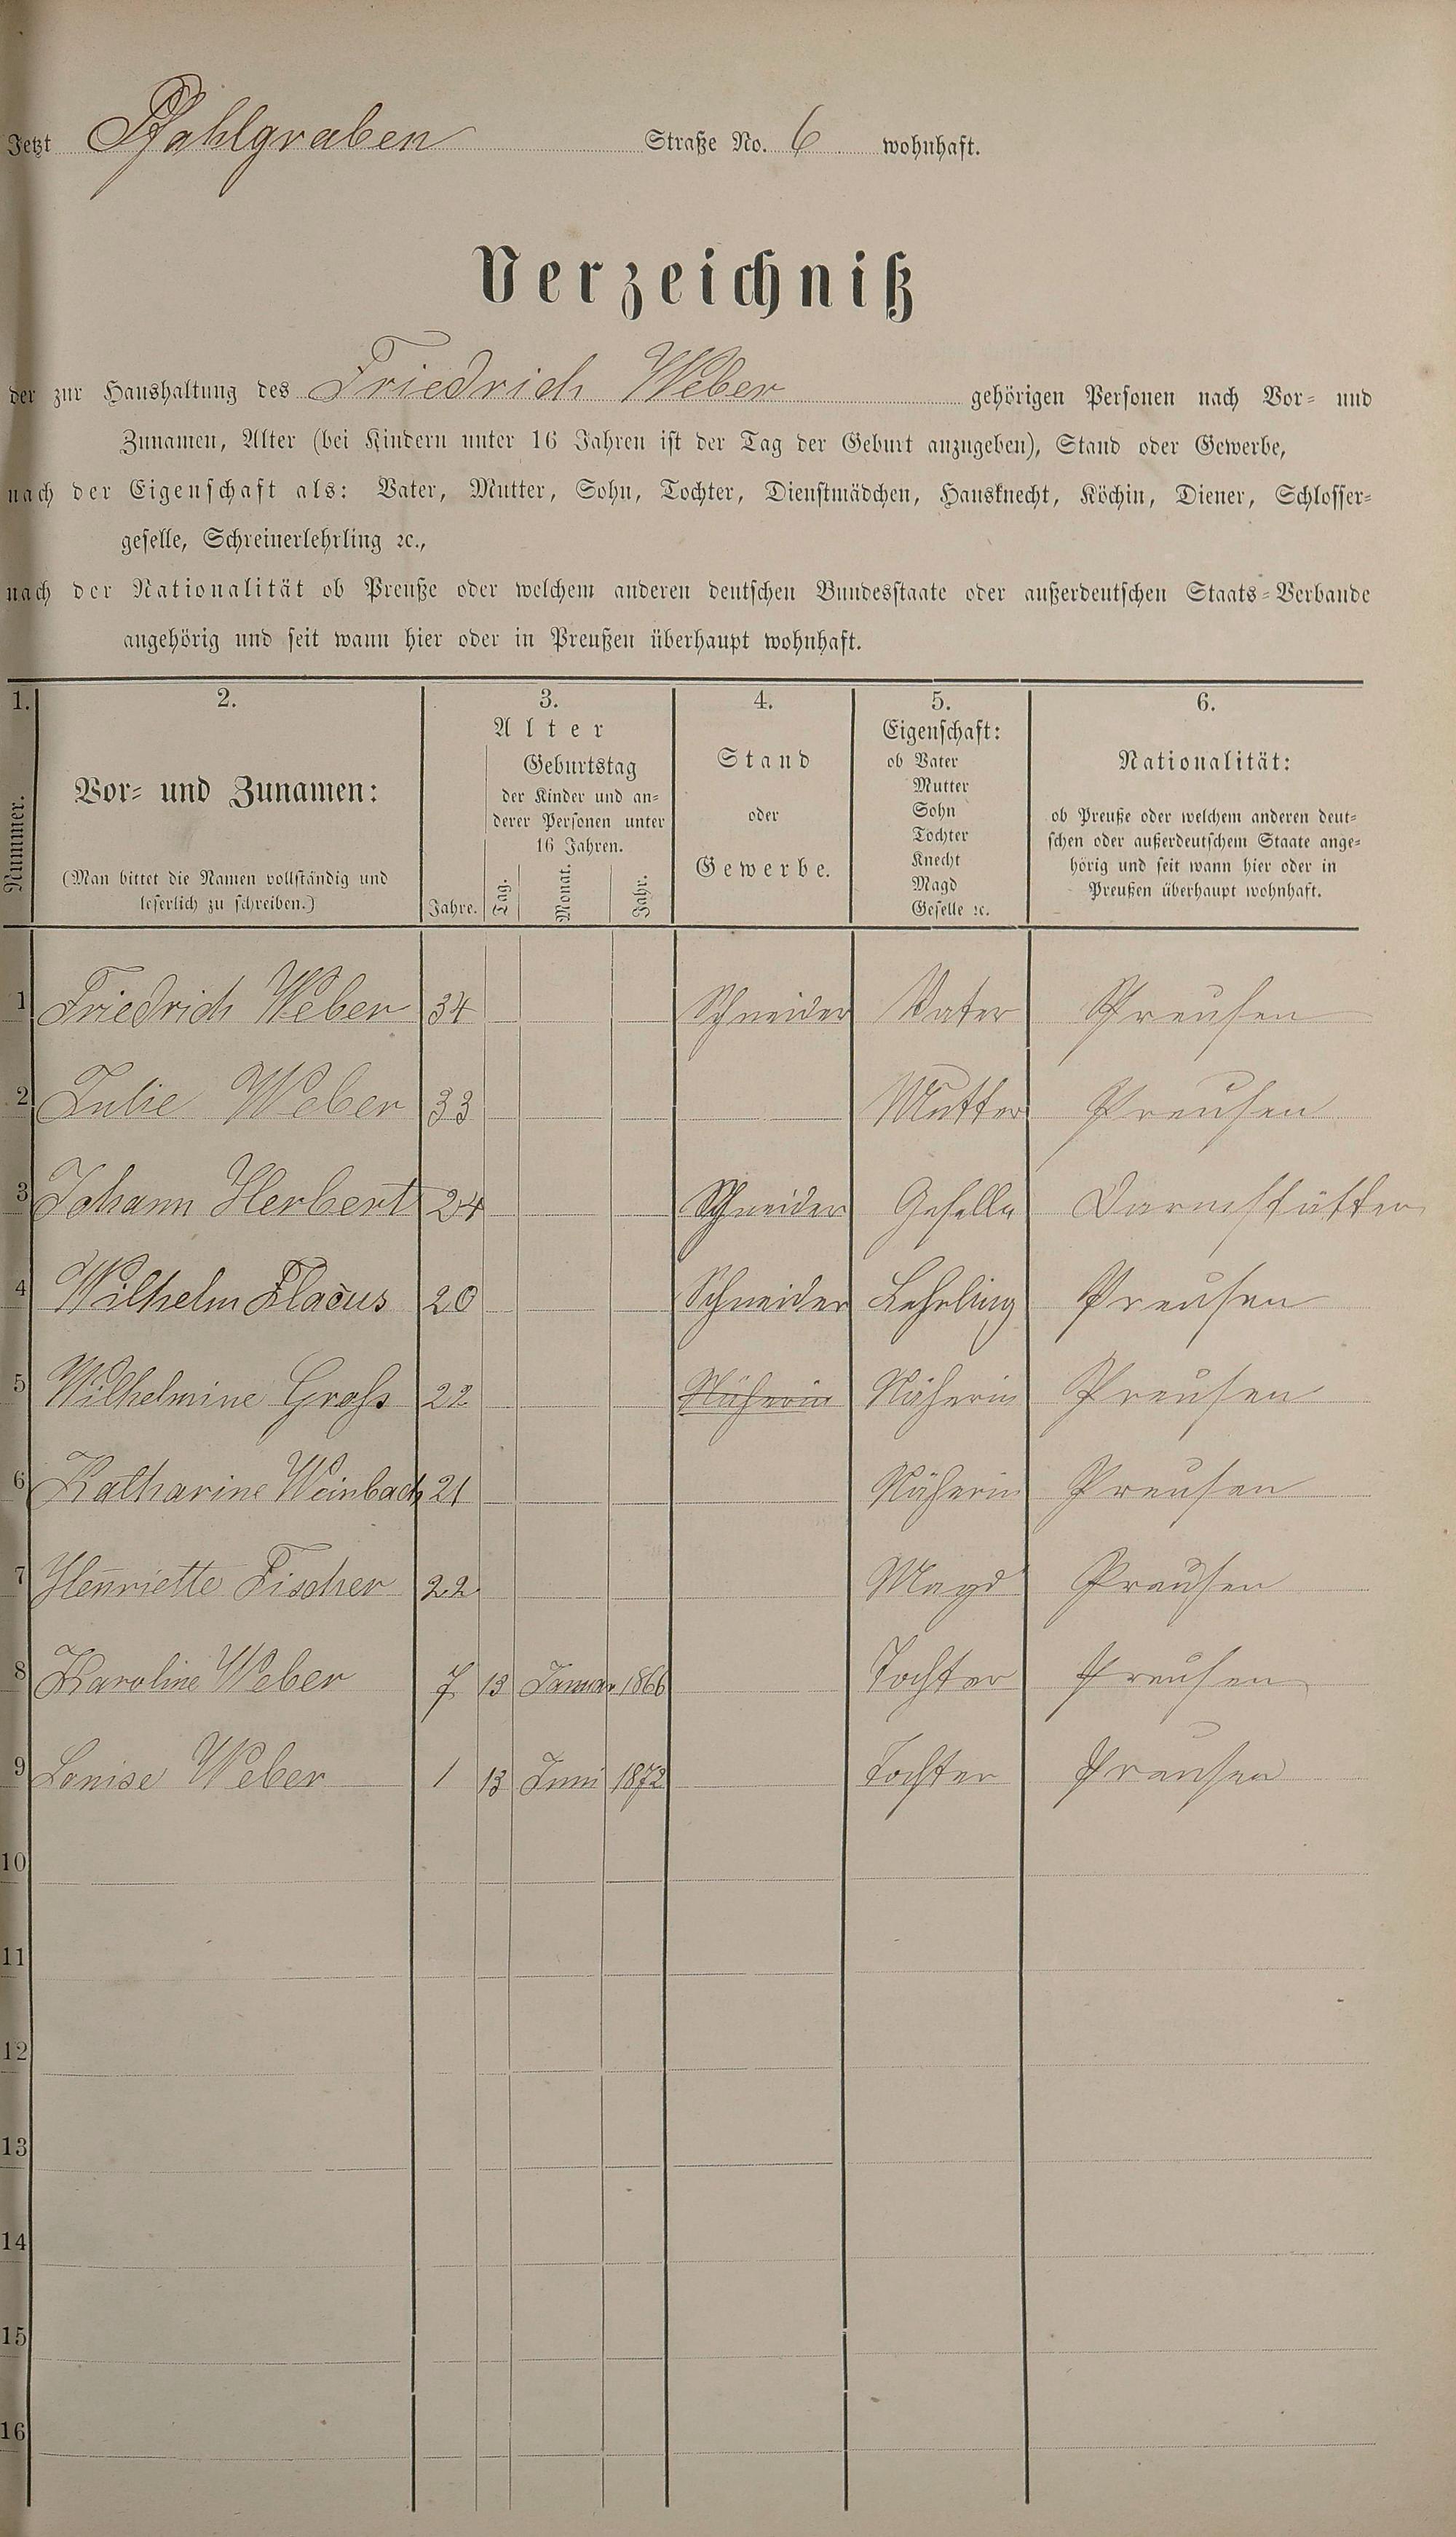 Jetzt Pfahlgraben Straße No. 6 wohnhaft.
Verzeichniß
der zur Haushaltung des Friedrich Weber gehörigen Personen nach Vor- und
Zunamen, Alter (bei Kindern unter 16 Jahren ist der Tag der Geburt anzugeben), Stand oder Gewerbe,
nach der Eigenschaft als: Vater, Mutter, Sohn, Tochter, Dienstmädchen, Hausknecht, Köchin, Diener, Schlosser-
geselle, Schreinerlehrling ꝛc.,
nach der Nationalität ob Preuße oder welchem anderen deutschen Bundesstaate oder außerdeutschen Staats-Verbande
angehörig und seit wann hier oder in Preußen überhaupt wohnhaft.
1.
Nummer.
2.
Vor- und Zunamen:
(Man bittet die Namen vollständig und
leserlich zu schreiben.)
3.
Alter
Jahre.
Geburtstag
der Kinder und an-
derer Personen unter
16 Jahren.
Tag.
Monat.
Jahr.
4.
Stand
oder
Gewerbe.
5.
Eigenschaft:
ob Vater
Mutter
Sohn
Tochter
Knecht
Magd
Geselle ꝛc.
6.
Nationalität:
ob Preuße oder welchem anderen deut-
schen oder außerdeutschem Staate ange-
hörig und seit wann hier oder in
Preußen überhaupt wohnhaft.
1 Friedrich Weber 34 Schneider Vater Preusen
2 Julie Weber 33 Mutter Preusen
3 Johann Herbert 24 Schneider Geselle Darmstätter
4 Wilhelm 20 Schneider Lehrling Preusen
5 Wilhelmine Groß 22 Näherin Näherin Preusen
6 Katharine Weinbach 21 Näherin Preusen
7 Henriette Fischer 22 Magd Preusen
8 Karoline Weber 7 13 Januar 1866 Tochter Preusen
9 Louise Weber 1 13 Juni 1872 Tochter Preusen
10
11
12
13
14
15
16